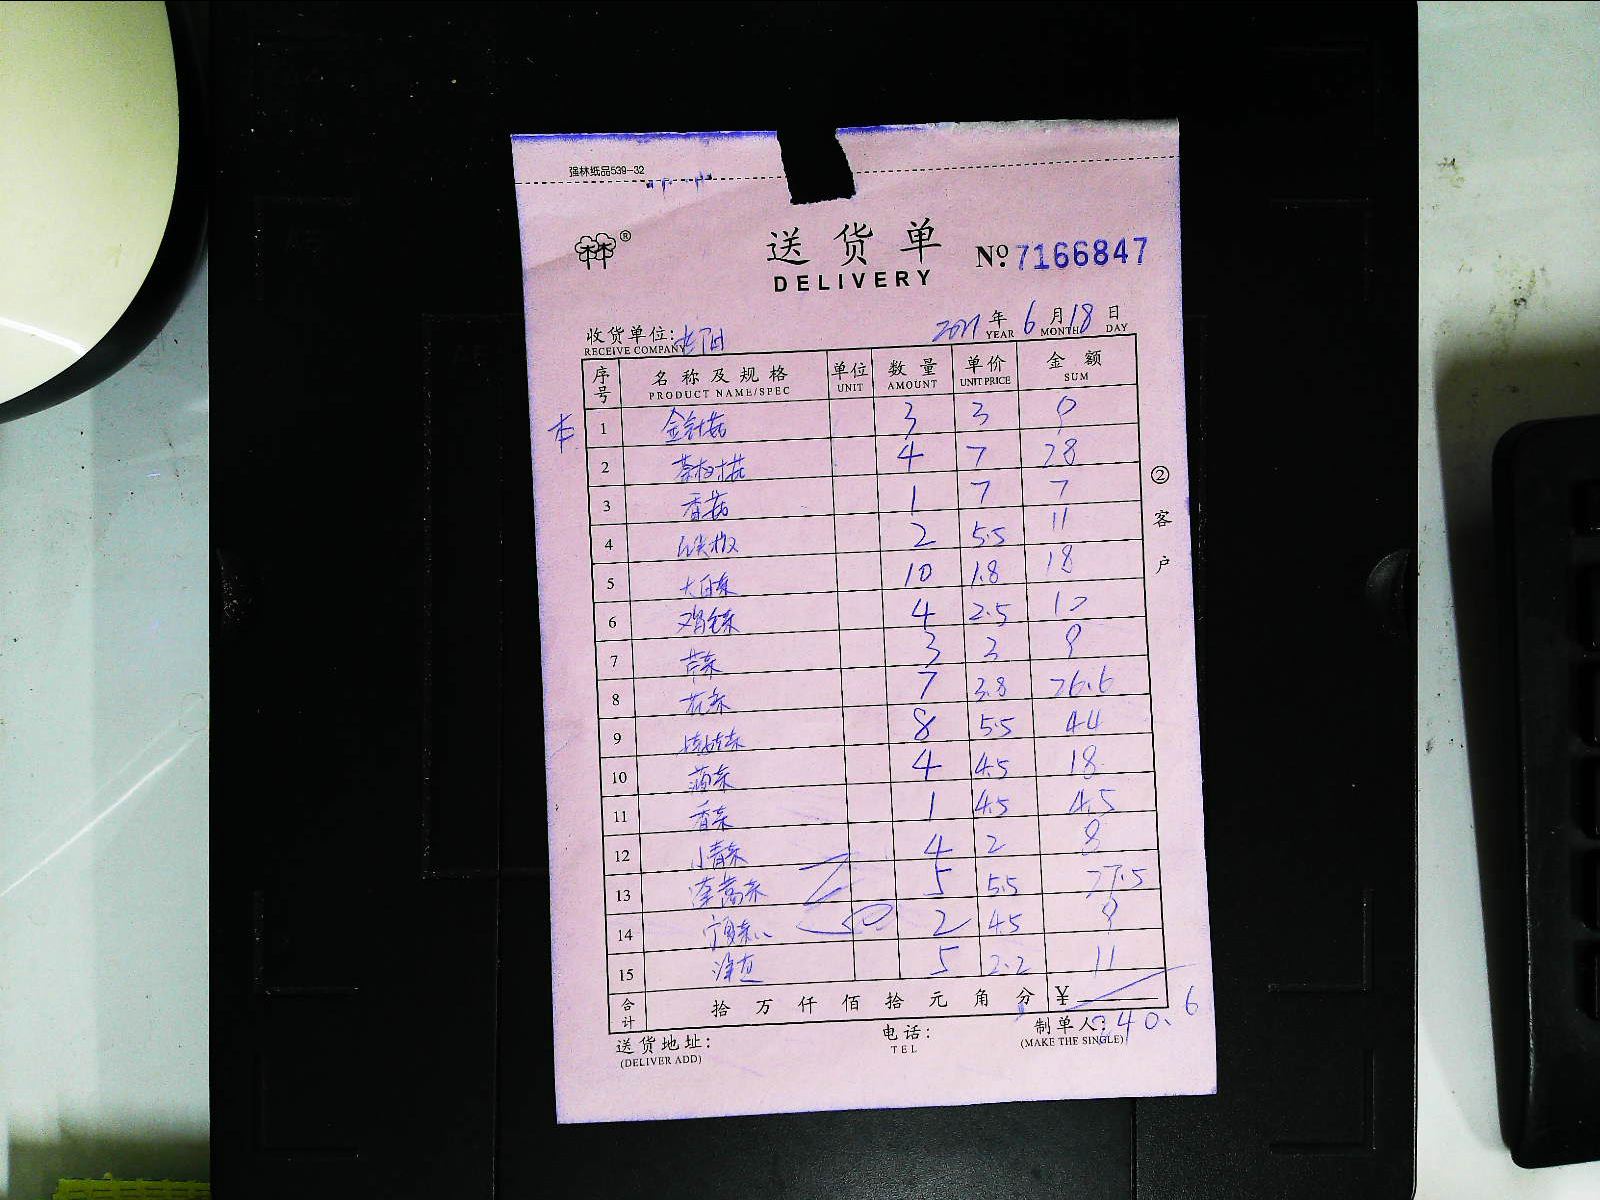 强林纸品539-32
林®
送货单
DELIVERY
No 7166847
收货单位:
RECEIVE COMPANY
2021年6月18日
YEAR MONTH DAY
序号 名称及规格 单位 数量 单价 金额
PRODUCT NAME/SPEC UNIT AMOUNT UNIT PRICE SUM
1 金针菇 3 3 9
2 茶树菇 4 7 28
3 香菇 1 7 7
4 2 5.5 11
5 大白菜 10 1.8 18
6 鸡毛菜 4 2.5 10
7 芹菜 3 3 9
8 花菜 7 3.8 26.6
9 8 5.5 44
10 菠菜 4 4.5 18
11 香菜 1 4.5 4.5
12 小青菜 4 2 8
13 蓬蒿菜 5 5.5 27.5
14 2 4.5 9
15 5 2.2 11
合计 拾万仟佰拾元角分 ¥
240.6
②客户
送货地址:
(DELIVER ADD)
电话:
TEL
制单人:
(MAKE THE SINGLE)